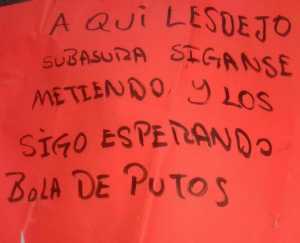 AQUI LES DEJO
SU BASURA SIGANSE
METIENDO Y LOS
SIGO ESPERANDO
BOLA DE PUTOS